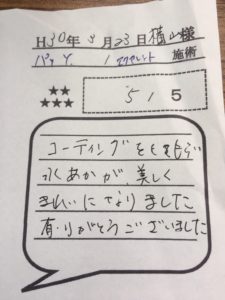 H30年3月23日 積山様
パッソ / アクセント 施術
★★
★★★
5 / 5
コーティングを
水あかが、美しく
きれいになりました
有りがとうございました